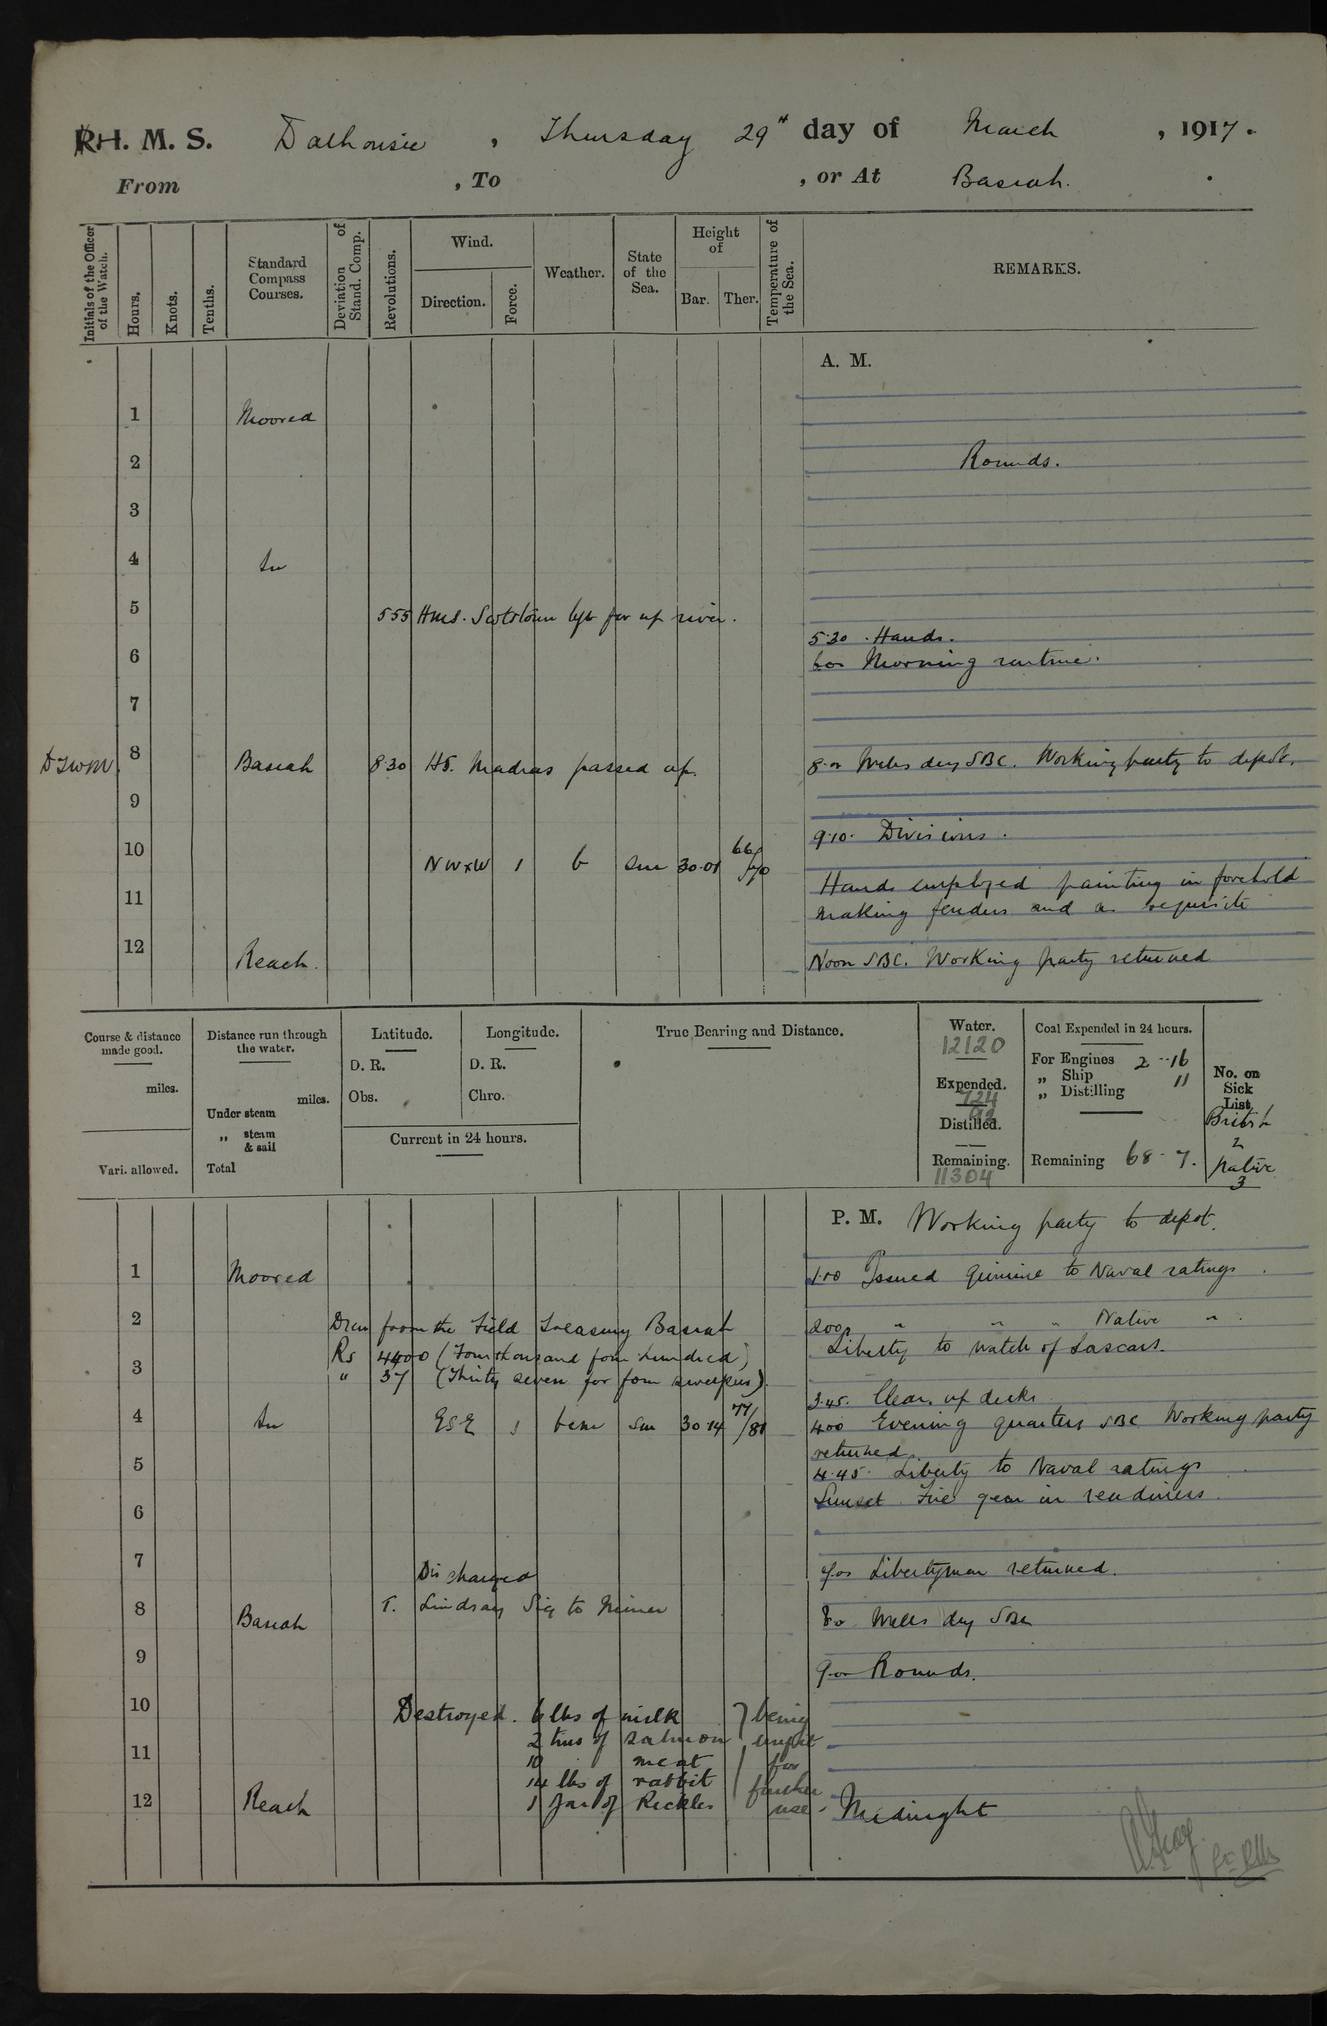 H. M. S. Dalhousie, Thursday 29th day of March, 1917.
From , To , or At Basrah.
Initials of the Officer of the Watch.
Hours.
Knots.
Tenths.
Standard Compass Courses.
Deviation of Stand. Comp.
Revolutions.
Wind.
Direction.
Force.
Weather.
State of the Sea.
Height of
Bar.
Ther.
Temperature of the Sea.
REMARKS.
A. M.
1 Moored
2 Rounds.
3
4 In
5 5 55 HMS. Scotstoun left for up river.
5.30 Hands.
6 6.00 Morning routine.
7
8 Basrah 8.30 HS. Madras passed up. 8.0 Wells dry SBC. Working party to depôt.
9
9.10. Divisions.
10 NWxW 1 b Sm 30.01 66/70
Hands employed painting in forehold
11 making fenders and as requisite
12 Reach. Noon SBC. Working party returned
Course & distance made good.
miles.
Vari. allowed.
Distance run through the water.
miles.
Under steam
„ steam & sail
Total
Latitude.
D. R.
Obs.
Longitude.
D. R.
Chro.
Current in 24 hours.
True Bearing and Distance.
Water.
12120
Expended.
724
92
Distilled.
Remaining.
11304
Coal Expended in 24 hours.
For Engines 2 - 16
„ Ship 11
„ Distilling
Remaining 68 - 7.
No. on Sick List
British
2
Native
3
P. M. Working party to depot.
1 Moored 1.00 Issued quinine to Naval ratings.
2 Drew from the Field Treasury Basrah 2.00 „ „ „ Native „.
Rs 4400 (Four thousand four hundred) Liberty to watch of Lascars.
3 „ 37 (Thirty seven for four sweepers).
3.45. Clear up decks
4 In ESE 1 bcm Sm 30.14 77/81 4.00 Evening quarters SBC Working party
returned.
5 4.45. Liberty to Naval ratings
Sunset Fire gear in readiness.
6
7 7.00 Libertymen returned.
Discharged
8 Basrah T. Lindsay Sig to Miner 8.0 Wells dry SBC
9 9.00 Rounds.
10 Destroyed. 6 lbs of milk } being
2 tins of salmon unfit
11 10 meat for
14 lbs of rabbit further
12 Reach 1 Jar of Pickles use. Midnight